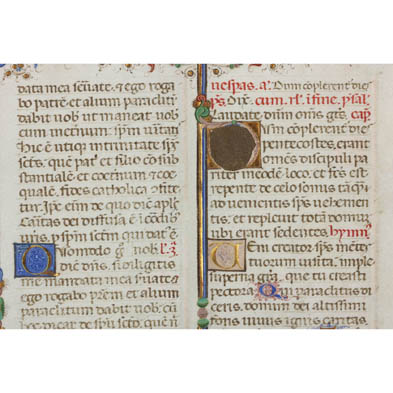 data mea seruate. et ego roga
bo patrem. et alium paraclitum
dabit uobis ut maneat uobis
cum in eternum. spm ueritatis
hic est utique in trinitate sps
scts. que patri et filio consub
stantialem et coeternum et coe
qualem. fides catholica
tur. Ipse enim de quo dicit apls
Caritas dei diffusa est in cordibus
uris. p spm sctm qui datus est
Quomodo gr nob. l. 3.
dic dns. si diligitis
me mandata mea seruate et
ego rogabo prem et alium
paraclitum dabit uob. ut
de spu scto. que
uespas. a. Dum coplerent dies
ps. Dix. cum rl. i fine. psal.
Laudate dnm oms gts. cap
Cum coplerent dies
pentecostes. erant
omes discipuli pa
riter i eodem loco. et fcs est
repente de celo sonus taq
ad uenientis sps uehemen
tis. et repleuit tota domum
ubi erant sedentes. hymn
Ueni creator sps. mentes
tuorum uisita. imple
superna gra. que tu creasti
pectora. Qui paraclitus di
ceris. donum dei altissimi
fons uiuus ignis caritas.